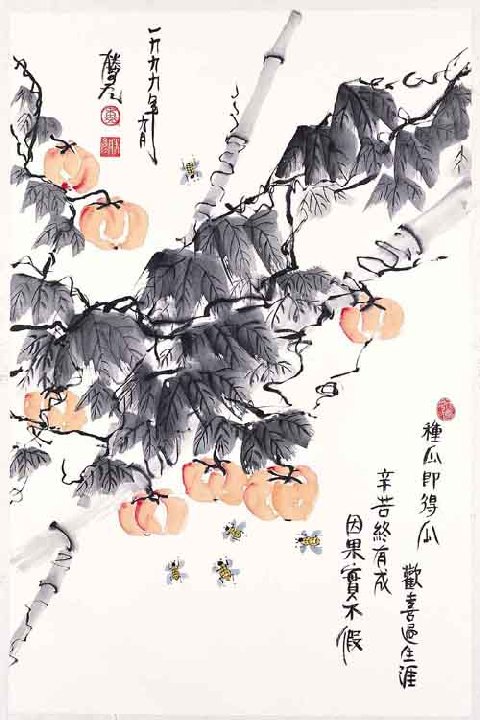 種瓜即得瓜
歡喜過生涯
辛苦終有成
因果實不假
一九九九年月